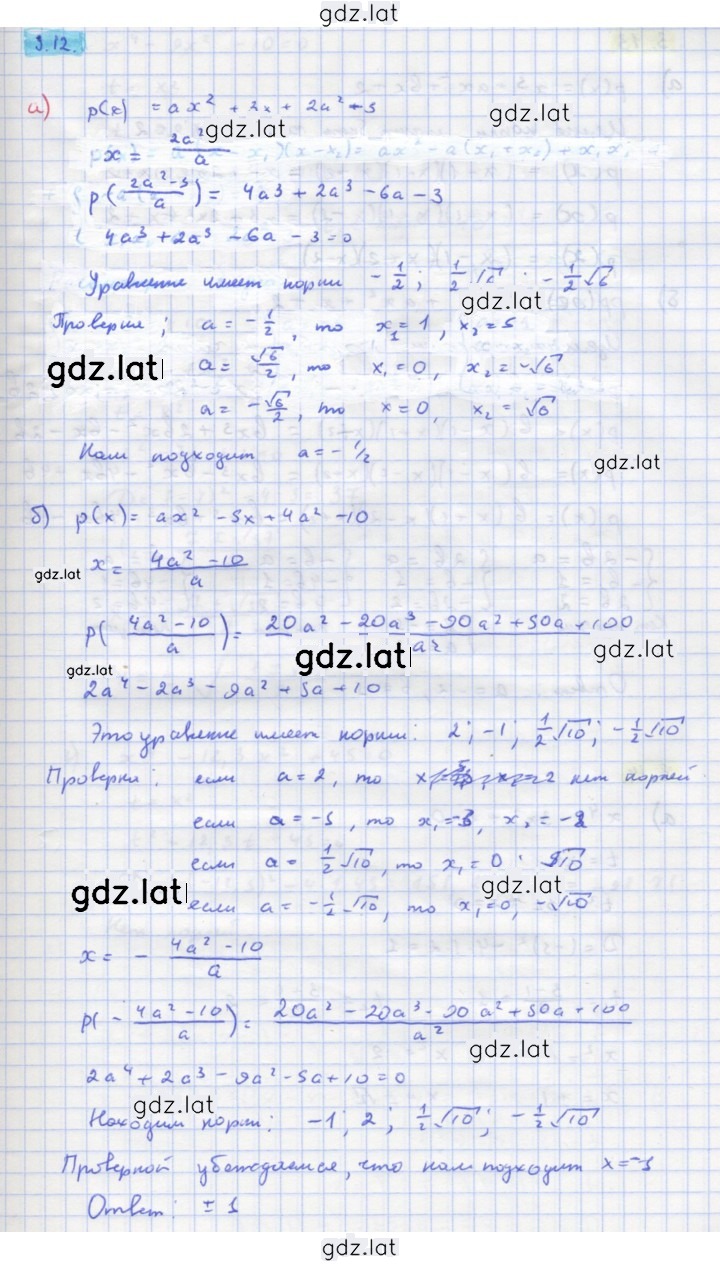 gdz.lat
3.12.
а) p(x) = ax² + 2x + 2a² - 3
gdz.lat
x = 2a² / a
gdz.lat
p((2a² - 3)/a) = 4a³ + 2a³ - 6a - 3
4a³ + 2a³ - 6a - 3 = 0
Уравнение имеет корни -1/2; 1/2 √6; -1/2 √6
gdz.lat
Проверим; a = -1/2, то x₁ = 1, x₂ = 5
gdz.lat a = √6/2, то x₁ = 0, x₂ = -√6
a = -√6/2, то x = 0, x₂ = √6
Нам подходит a = -1/2
gdz.lat
б) p(x) = ax² - 5x + 4a² - 10
gdz.lat x = (4a² - 10)/a
p((4a² - 10)/a) = (20a² - 20a³ - 90a² + 50a + 100)/a²
gdz.lat gdz.lat gdz.lat
2a⁴ - 2a³ - 9a² + 5a + 10
Это уравнение имеет корни: 2; -1; 1/2 √10; -1/2 √10
Проверка: если a = 2, то нет корней
если a = -1, то x₁ = -3, x₂ = -2
если a = 1/2 √10, то x₁ = 0; √10
gdz.lat gdz.lat
если a = -1/2 √10, то x₁ = 0; -√10
x = - (4a² - 10)/a
p(-(4a² - 10)/a) = (20a² - 20a³ - 90a² + 50a + 100)/a²
gdz.lat
2a⁴ + 2a³ - 9a² - 5a + 10 = 0
gdz.lat
Находим корни: -1; 2; 1/2 √10; -1/2 √10
Проверкой убеждаемся, что нам подходит x = -1
Ответ: ± 1
gdz.lat